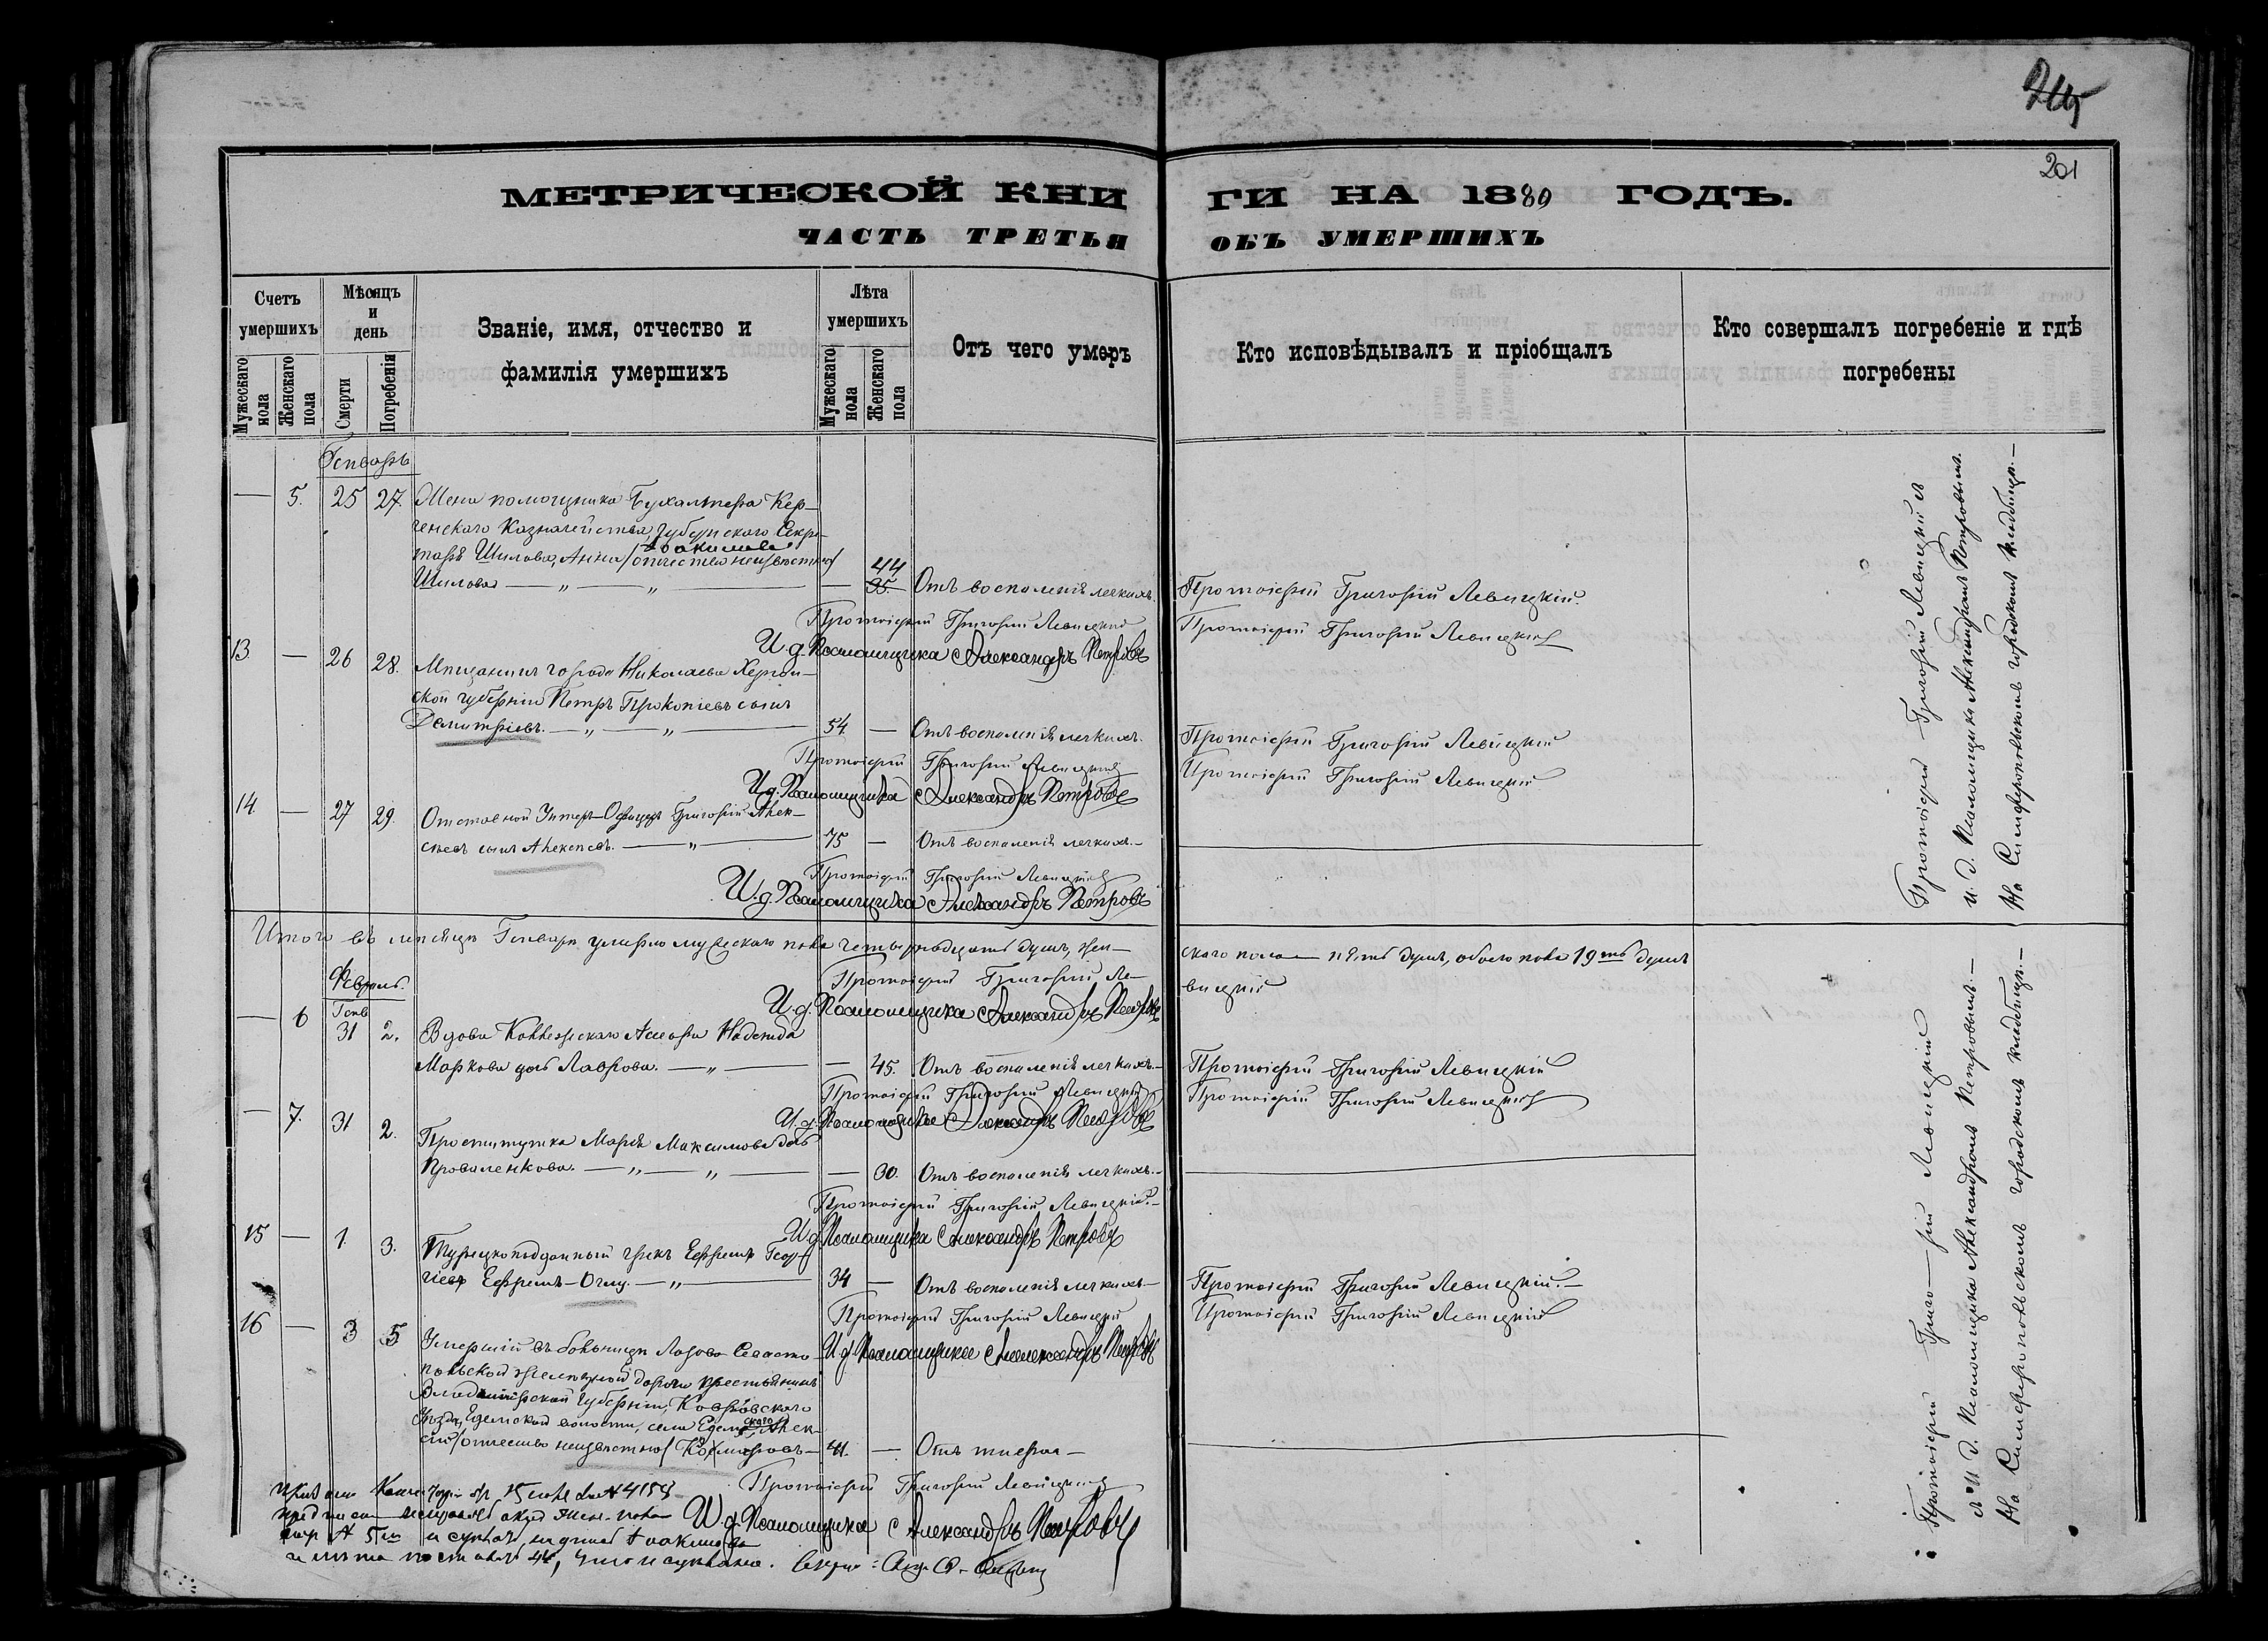 201
МЕТРИЧЕСКОЙ КНИ ГИ НА 1880 ГОДЪ.
ЧАСТЬ ТРЕТЬЯ ОБЪ УМЕРШИХЪ
Счетъ умершихъ
Мужескаго пола
Женскаго пола
Мѣсяцъ и день
Смерти
Погребенія
Званіе, имя, отчество и фамилія умершихъ
Лѣта умершихъ
Мужескаго пола
Женскаго пола
Отъ чего умеръ
Кто исповѣдывалъ и пріобщалъ
Кто совершалъ погребеніе и гдѣ погребены
Генварь
— 5. 25 27. Жена помощника Бухгалтера Кер-
ченскаго Казначейства, Губернскаго Секре-
таря Шилова, Анна /отчество неизвѣстно/
Іоакимова
44
Шилова — „ — „ — 35. Отъ воспаленія легкихъ. Протоіерей Григорій Левицкій.
Протоіерей Григорій Левицкій Протоіерей Григорій Левицкій
И. д. Псаломщика Александръ Петровъ
13. — 26 28. Мѣщанинъ города Николаева Херсон-
ской губерніи Петръ Прокопіевъ сынъ
Димитріевъ. — „ — „ — 54 — Отъ воспаленія легкихъ. Протоіерей Григорій Левицкій
Протоіерей Григорій Левицкій Протоіерей Григорій Левицкій
И. д. Псаломщика Александръ Петровъ
14 — 27 29. Отставной Унтеръ-Офицеръ Григорій Алек-
сѣевъ сынъ Алексѣевъ. — „ — 75 — Отъ воспаленія легкихъ. —
Протоіерей Григорій Левицкій
И. д. Псаломщика Александръ Петровъ
Протоіерей Григорій Левицкій съ
и. д. Псаломщика Александромъ Петровымъ.
На Симферопольскомъ городскомъ кладбищѣ. —
Итого въ мѣсяцѣ Генварѣ умерло мужескаго пола четырнадцать душъ, жен-
скаго пола пять душъ, обоего пола 19ть душъ
Протоіерей Григорій Ле-
вицкій
И. д. Псаломщика Александръ Петровъ
Февраль.
Генв
— 6 31 2. Вдова Коллежскаго Асесора Надежда
Маркова дочь Лаврова. — „ — 45. Отъ воспаленія легкихъ. — Протоіерей Григорій Левицкій
Протоіерей Григорій Левицкій Протоіерей Григорій Левицкій
И. д. Псаломщика Александръ Петровъ
— 7. 31 2. Проститутка Марія Максимова дочь
Проваленкова. — „ — „ — 30. Отъ воспаленія легкихъ. —
Протоіерей Григорій Левицкій. —
И. д. Псаломщика Александръ Петровъ
15 — 1 3. Турецкоподданный грекъ Ефремъ Геор-
гіевъ Ефремъ-Оглу. — „ — 34 — Отъ воспаленія легкихъ — Протоіерей Григорій Левицкій. —
Протоіерей Григорій Левицкій Протоіерей Григорій Левицкій
И. д. Псаломщика Александръ Петровъ
16 — 3 5 Умершій въ больницѣ Лозово-Севасто-
польской желѣзной дороги крестьянинъ
Владимірской Губерніи, Ковровскаго
Уѣзда, Едемской волости, села Едемскаго Алек-
сѣй /отчество неизвѣстно/ — 41. — Отъ тифа —
Протоіерей Григорій Левицкій
И. д. Псаломщика Александръ Петровъ
Протоіерей Григорій Левицкій
съ И. Д. Псаломщика Александромъ Петровымъ. —
На Симферопольскомъ городскомъ кладбищѣ. —
15 № 4154
жен. пола
№ 5 Іоакимова
44,